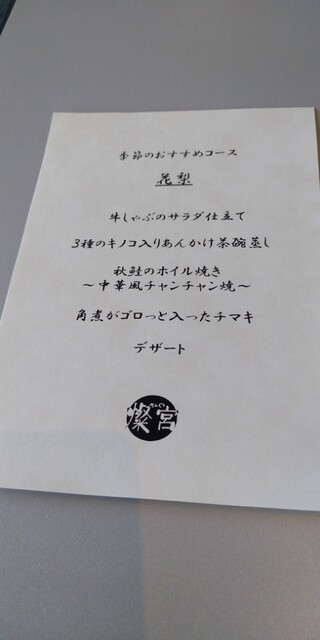 季節のおすすめコース
花梨
牛しゃぶのサラダ仕立て
3種のキノコ入りあんかけ茶碗蒸し
秋鮭のホイル焼き
～中華風チャンチャン焼～
角煮がゴロっと入ったチマキ
デザート
燦宮